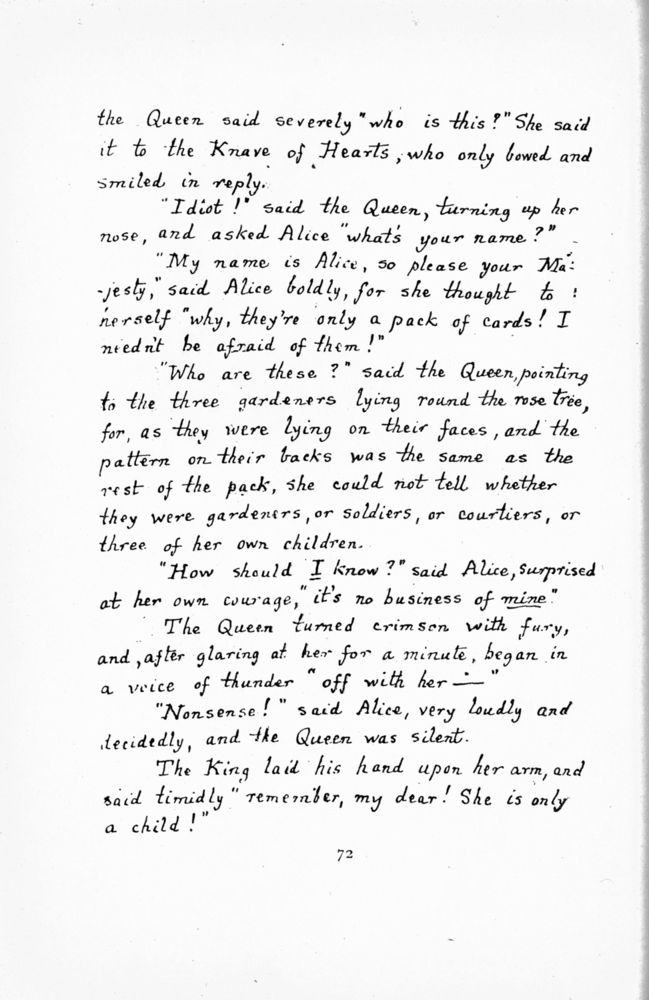 the Queen said severely "who is this?" She said
it to the Knave of Hearts, who only bowed and
smiled in reply.
"Idiot!" said the Queen, turning up her
nose, and asked Alice "what's your name?"
"My name is Alice, so please your Ma-
-jesty," said Alice boldly, for she thought to
herself "why, they're only a pack of cards! I
needn't be afraid of them!"
"Who are these?" said the Queen, pointing
to the three gardeners lying round the rose tree,
for, as they were lying on their faces, and the
pattern on their backs was the same as the
rest of the pack, she could not tell whether
they were gardeners, or soldiers, or courtiers, or
three of her own children.
"How should I know?" said Alice, surprised
at her own courage, "it's no business of mine."
The Queen turned crimson with fury,
and, after glaring at her for a minute, began in
a voice of thunder "off with her —"
"Nonsense!" said Alice, very loudly and
decidedly, and the Queen was silent.
The King laid his hand upon her arm, and
said timidly "remember, my dear! She is only
a child!"
72